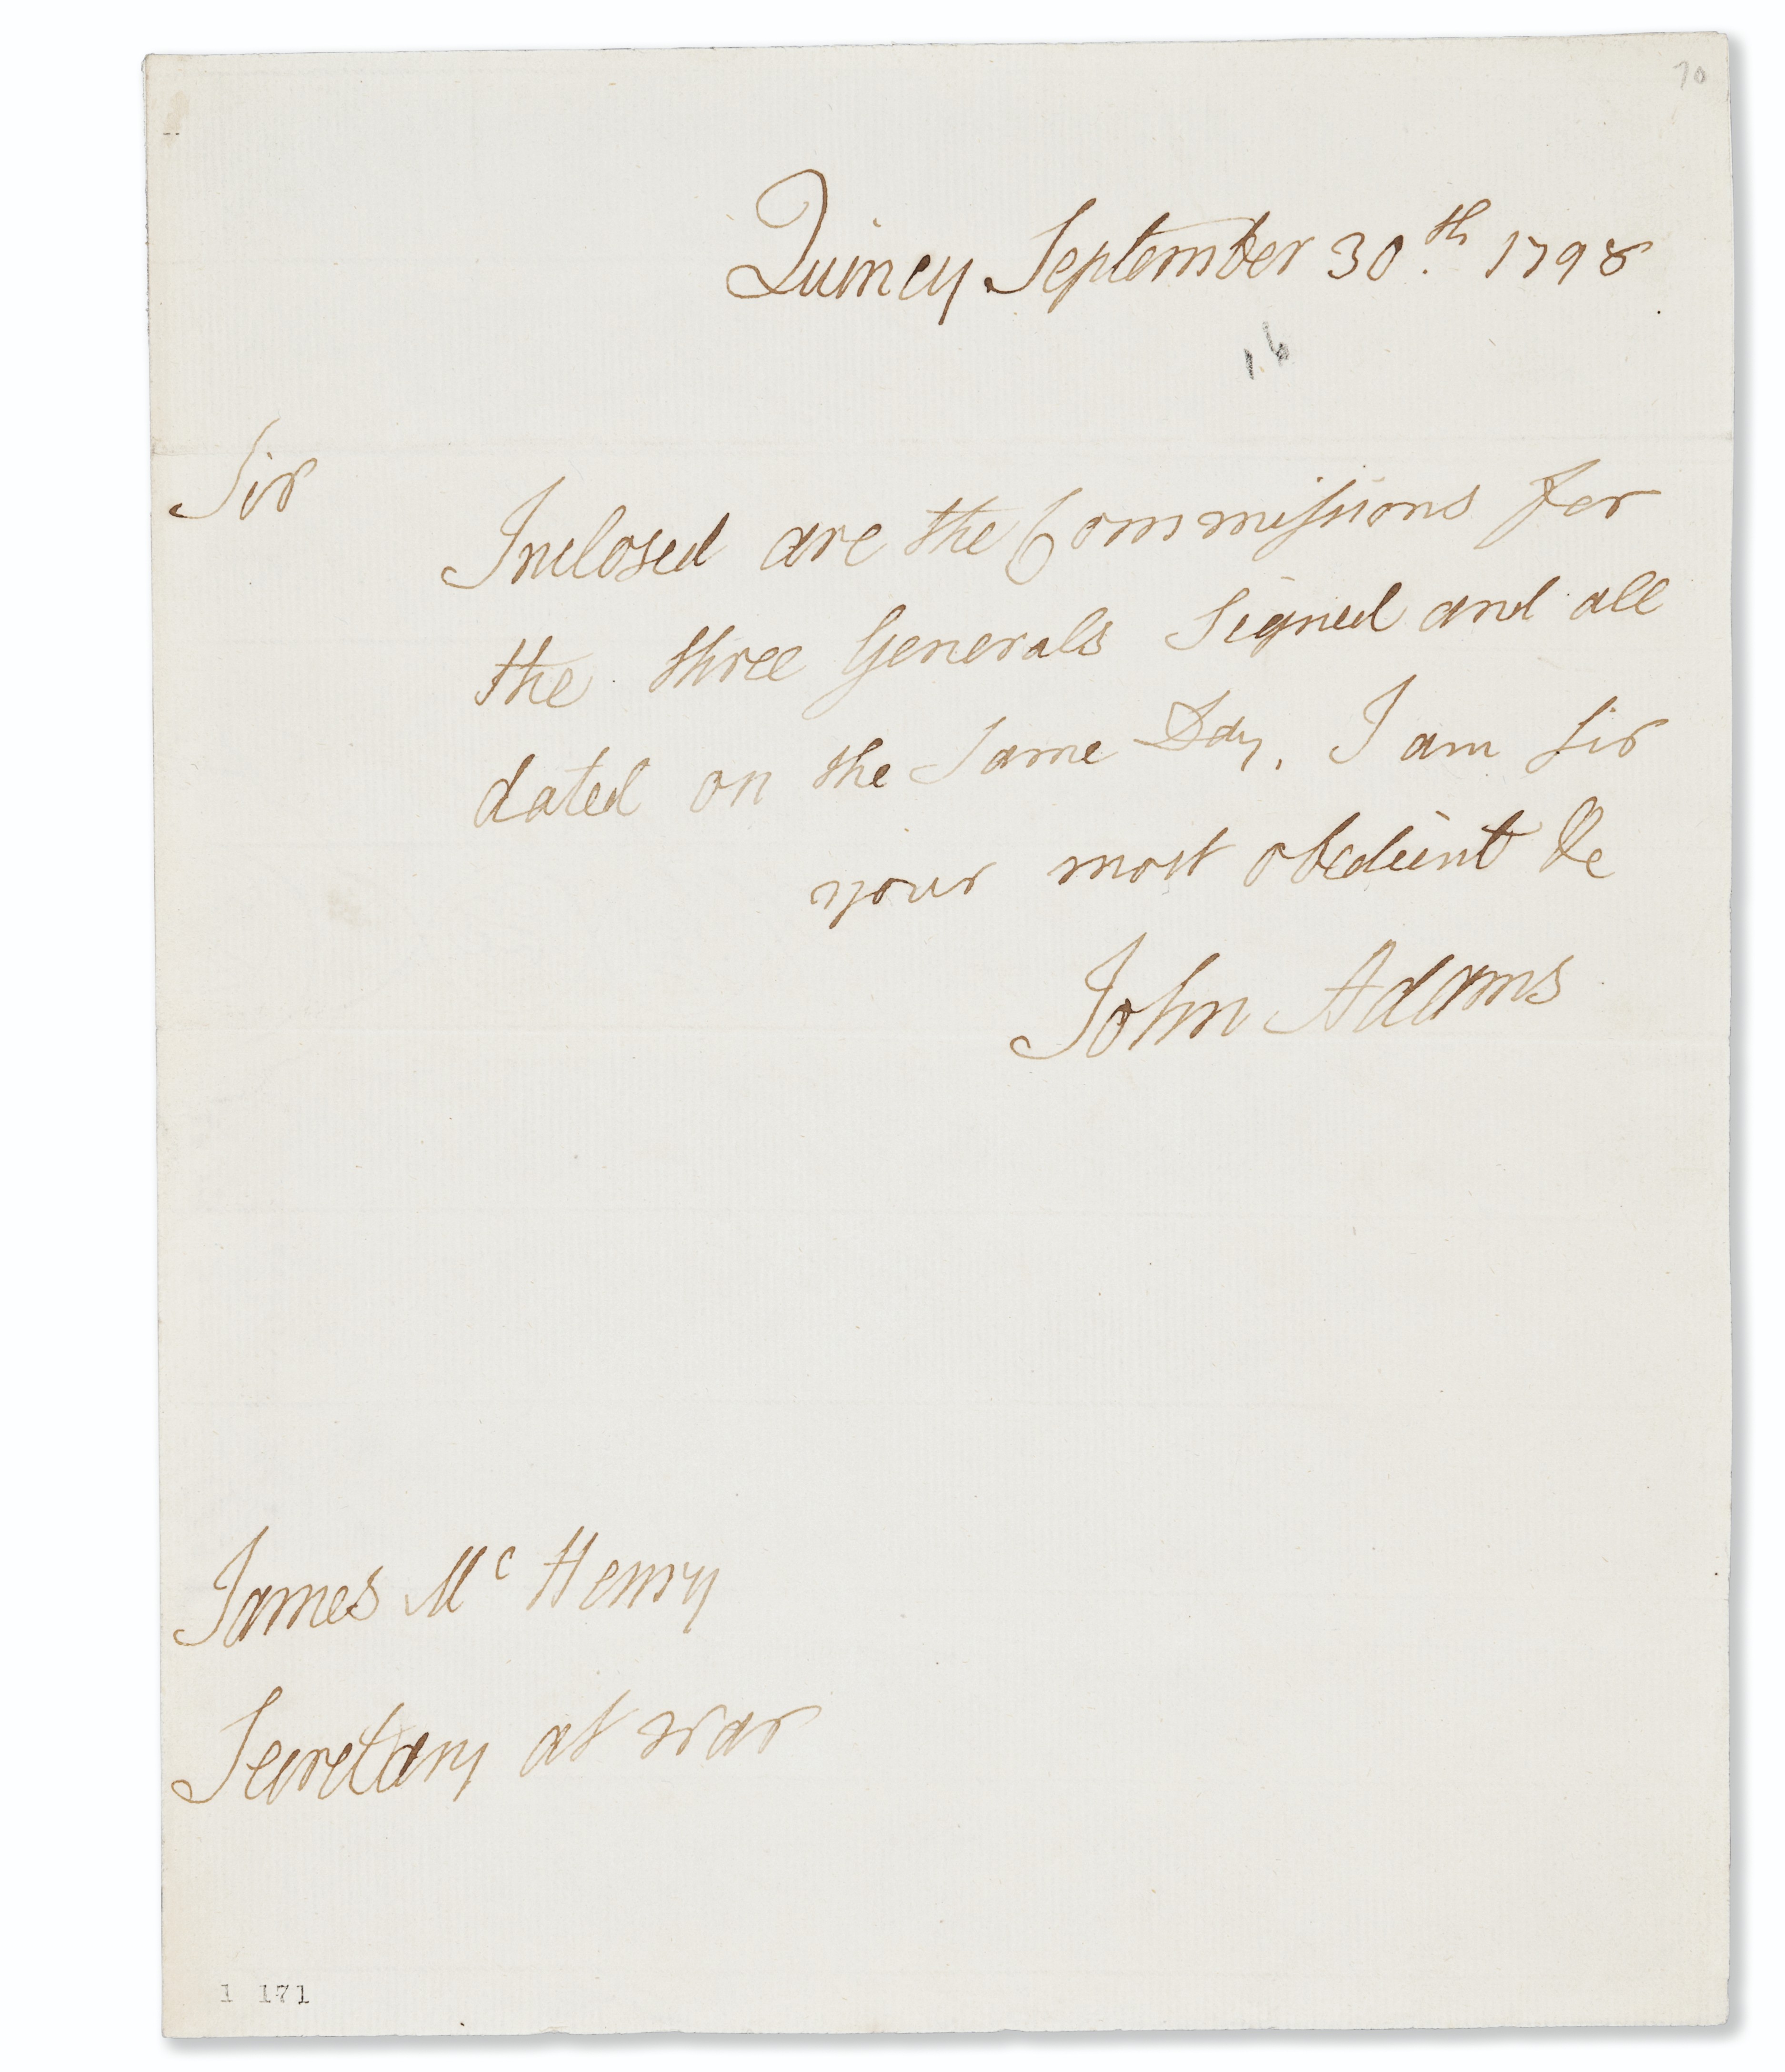 70
Quincy September 30.th 1798
16
Sir
Inclosed are the Commissions for
the three Generals Signed and all
dated on the Same Day. I am sir
your most obedient &c
John Adams
James Mc Henry
Secretary at war
1 171